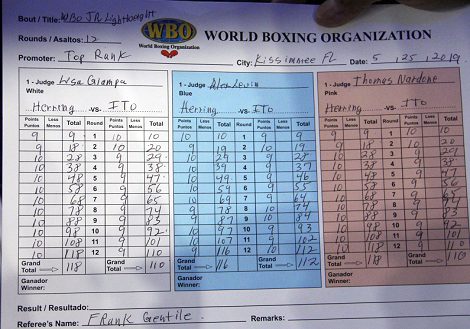 Bout / Title: WBO JR Lightweight
Rounds / Asaltos: 12
WBO
World Boxing Organization
WORLD BOXING ORGANIZATION
Promoter: Top Rank City: Kissimmee FL Date: 5 25 2019
1 - Judge Lisa Giampa 1 - Judge Alex Levin 1 - Judge Thomas Nardone
White Blue Pink
Herring -vs- ITo Herring -vs- ITo Herring -vs- ITo
Points Puntos Less Menos Total Round Points Puntos Less Menos Total Points Puntos Less Menos Total Round Points Puntos Less Menos Total Points Puntos Less Menos Total Round Points Puntos Less Menos Total
9 9 1 10 10 10 10 1 9 9 9 9 1 10 10
9 18 2 10 20 9 19 2 10 19 9 18 2 10 20
10 28 3 9 29 10 29 3 9 28 10 28 3 9 29
10 38 4 9 38 10 39 4 9 37 10 38 4 9 38
10 48 5 9 47 10 49 5 9 46 10 48 5 9 47
10 58 6 9 56 10 59 6 9 55 10 58 6 9 56
10 68 7 9 65 10 69 7 9 64 10 68 7 9 65
10 78 8 9 74 9 78 8 10 74 10 78 8 9 74
10 88 9 9 83 9 87 9 10 84 10 88 9 9 83
10 98 10 9 92 10 97 10 9 93 10 98 10 9 92
10 108 11 9 101 10 107 11 9 102 10 108 11 9 101
10 118 12 9 110 9 116 12 10 112 10 118 12 9 110
Grand Total 118 Grand Total 110 Grand Total 116 Grand Total 112 Grand Total 118 Grand Total 110
Ganador Winner: Ganador Winner: Ganador Winner:
Result / Resultado:
Referee's Name: FRank Gentile Remarks: